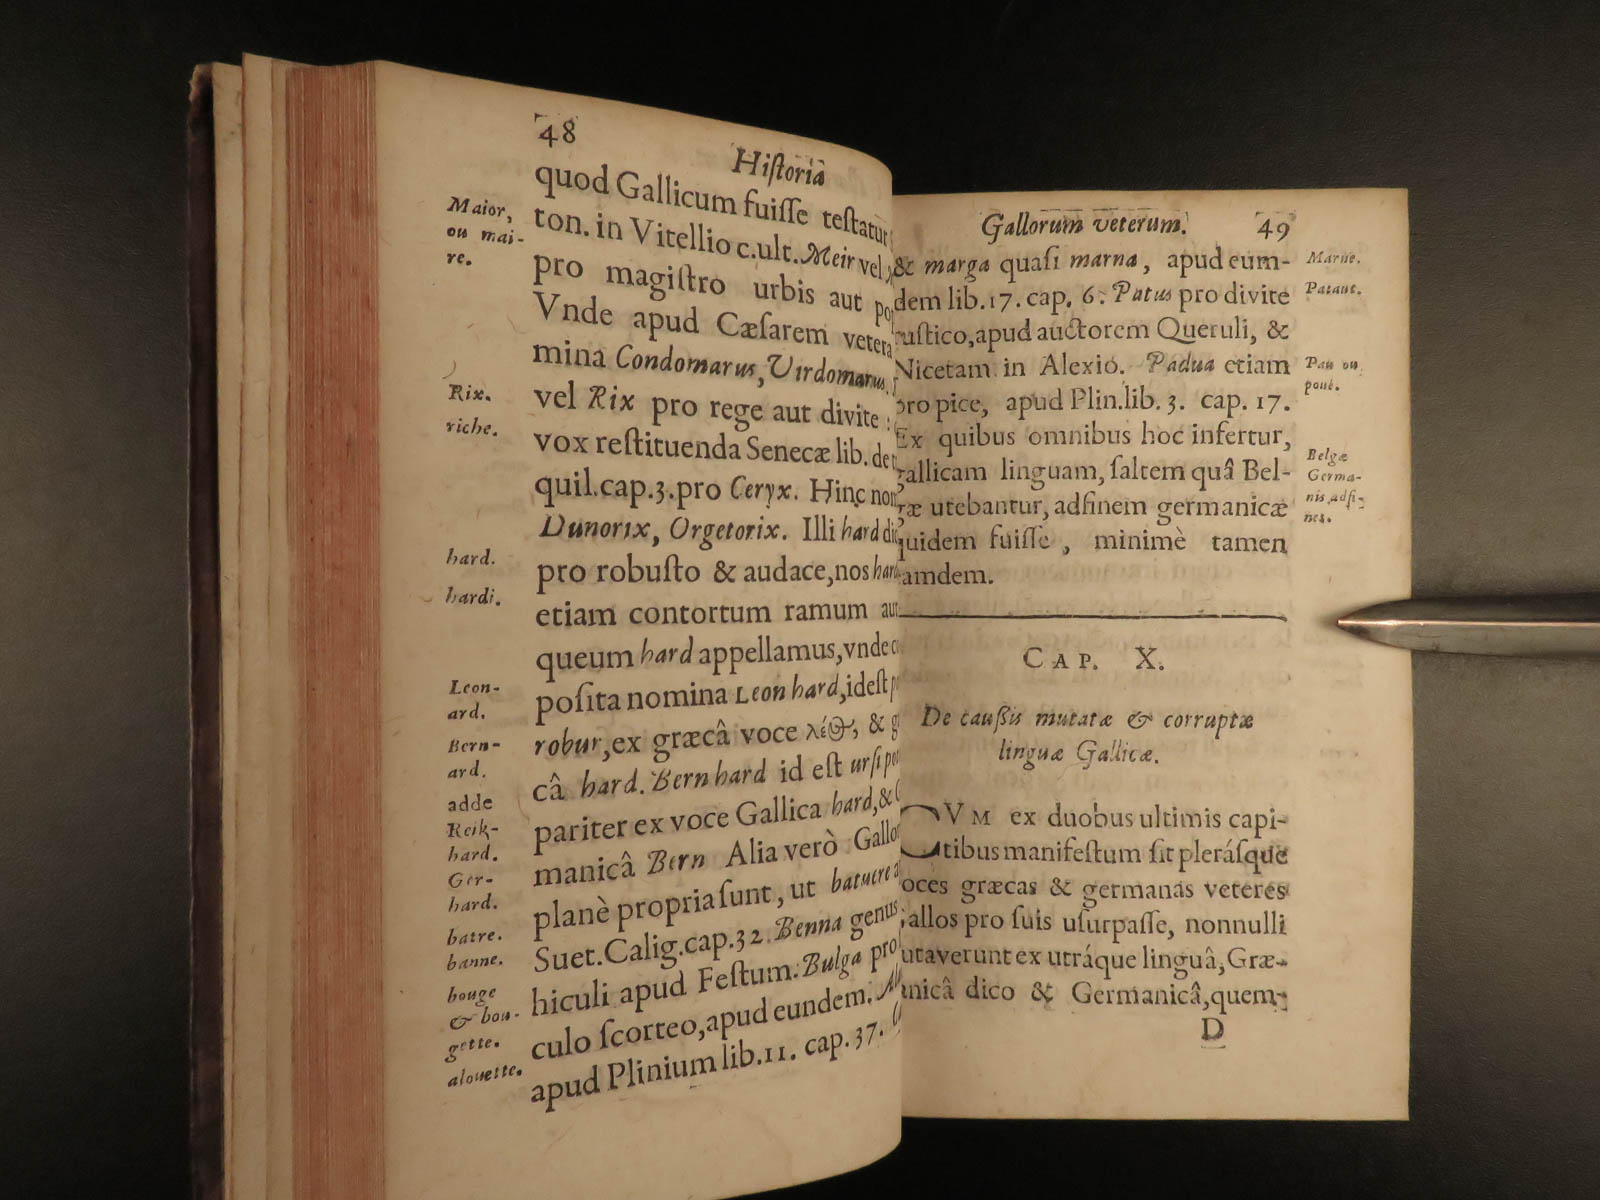 48
Hiſtoria
Maior,
ou mai-
re.
Rix.
riche.
hard.
hardi.
Leon-
ard.
Bern-
ard.
adde
Reik-
hard.
Ger-
hard.
batre.
banne.
bouge
& bou-
gette.
alouette.
quod Gallicum fuiſſe teſtatur
ton. in Vitellio c.ult. Meir vel
pro magiſtro urbis aut
Vnde apud Cæſarem vetera
mina Condomarus, Virdomarus.
vel Rix pro rege aut divite:
vox reſtituenda Senecæ lib. de
quil.cap.3.pro Ceryx. Hinc
Dunorix, Orgetorix. Illi hard
pro robuſto & audace, nos
etiam contortum ramum
queum hard appellamus, vnde
poſita nomina Leon hard, ideſt
robur, ex græcâ voce &
câ hard. Bernhard id eſt urſi
pariter ex voce Gallica hard, &
manicâ Bern Alia verò
planè propria ſunt, ut batuere
Suet.Calig.cap.32. Benna genus
hiculi apud Feſtum. Bulga pro
culo ſcorteo, apud eundem.
apud Plinium lib.11. cap.37.
Gallorum veterum. 49
& marga quaſi marna, apud eum-
dem lib.17. cap. 6. Patus pro divite
ruſtico, apud auctorem Queruli, &
Nicetam in Alexio. Padua etiam
pro pice, apud Plin.lib. 3. cap. 17.
Ex quibus omnibus hoc infertur,
gallicam linguam, ſaltem quâ Bel-
gæ utebantur, adfinem germanicæ
quidem fuiſſe, minimè tamen
eamdem.
Marne.
Pataut.
Pau ou
poué.
Belgæ
Germa-
nis adfi-
nes.
CAP. X.
De cauſſis mutatæ & corruptæ
linguæ Gallicæ.
CVM ex duobus ultimis capi-
tibus manifeſtum ſit pleráſque
voces græcas & germanas veteres
Gallos pro ſuis uſurpaſſe, nonnulli
putaverunt ex utráque linguâ, Græ-
canicâ dico & Germanicâ, quem-
D